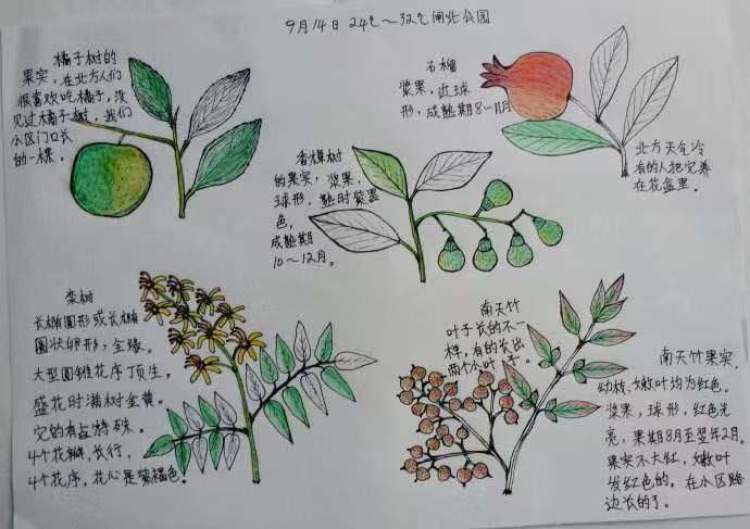 9月14日 24℃～32℃ 闸北公园
橘子树的
果实，在北方人们
很喜欢吃橘子，没
见过橘子树，我们
小区门口长
的一棵。
石榴
浆果，近球
形，成熟期8～11月
北方天气冷
有的人把它养
在花盆里。
香樟树
的果实，浆果，
球形，熟时紫黑
色，
成熟期
10～12月。
栾树
长椭圆形或长椭
圆状卵形，全缘。
大型圆锥花序顶生。
盛花时满树金黄。
它的有点特殊。
4个花瓣，长行，
4个花序，花心是紫褐色。
南天竹
叶子长的不一
样，有的长出
两个小叶子。
南天竹果实
幼枝、嫩叶均为红色。
浆果，球形，红色光
亮，果期8月至翌年2月，
果实不大红，嫩叶
发红色的。在小区路
边长的了。